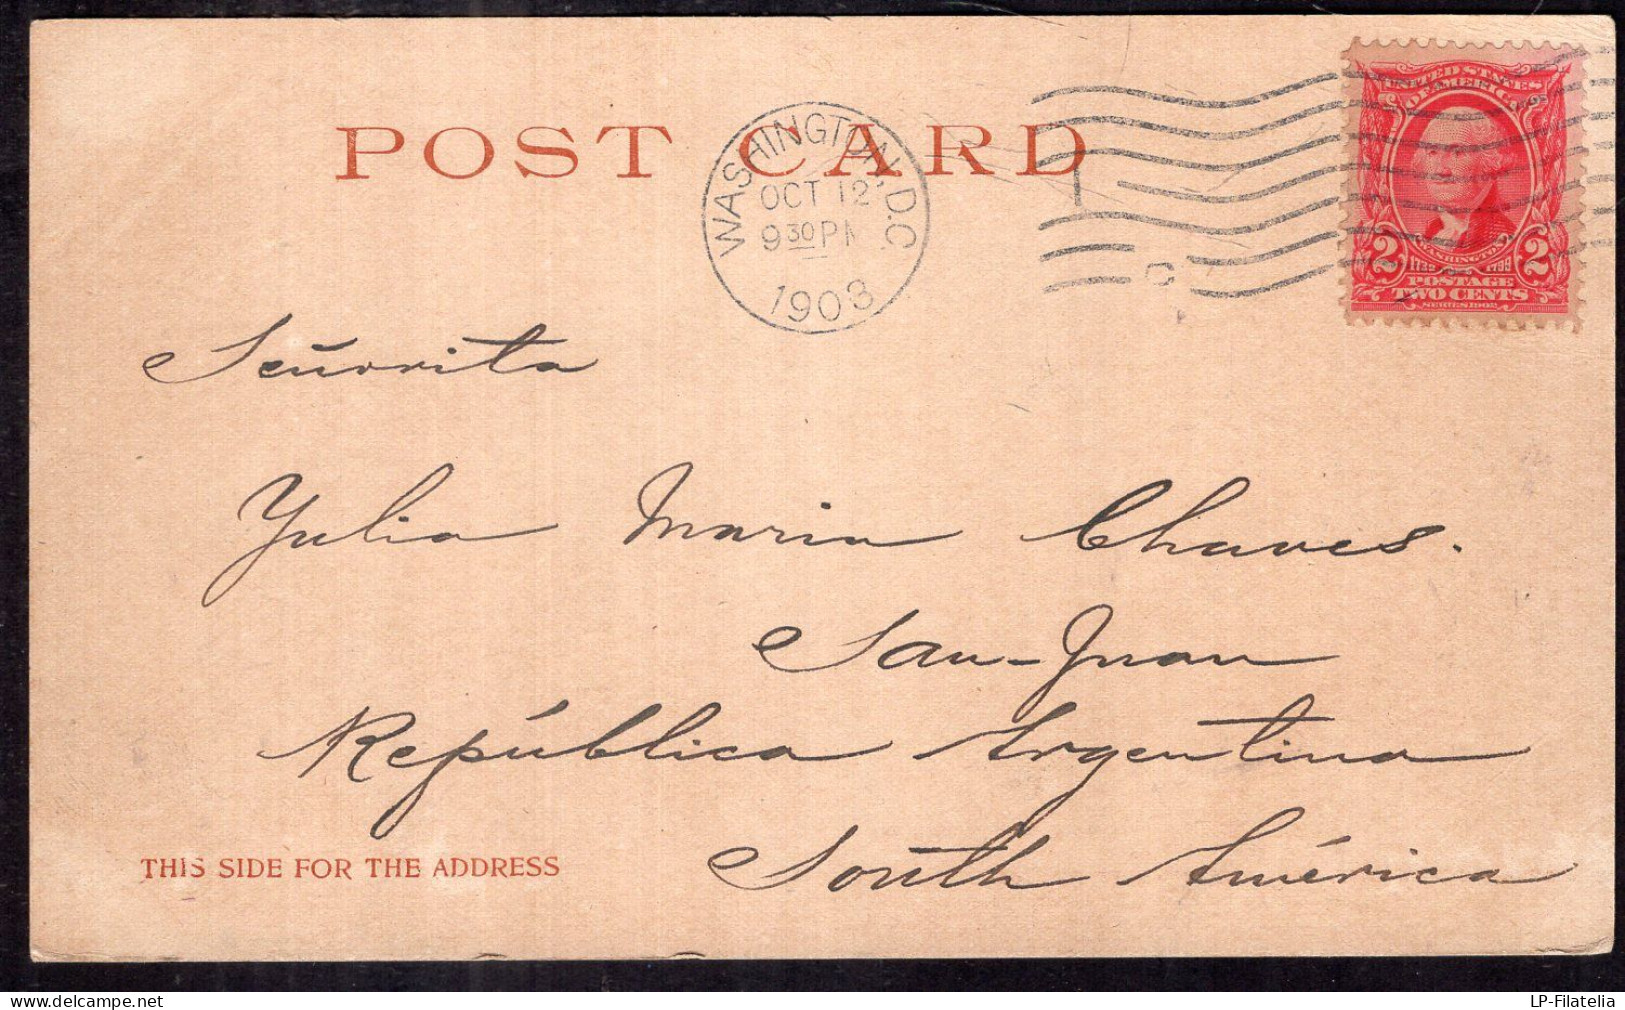 POST CARD
WASHINGTON, D.C.
OCT 12
9 30 PM
1903
UNITED STATES
OF AMERICA
WASHINGTON
2 1732 1799 2
POSTAGE
TWO CENTS
SERIES 1902
Señorita
Yulia Maria Chaves.
San-Juan
República Argentina
THIS SIDE FOR THE ADDRESS
South América
LP-Filatelia